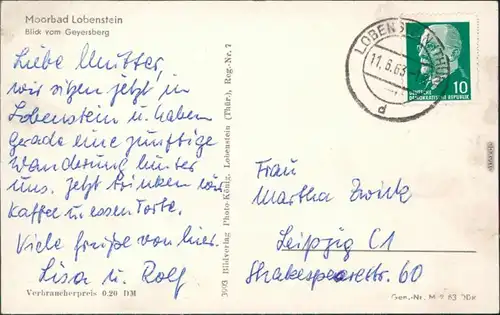 Moorbad Lobenstein
Blick vom Geyersberg
Liebe Mutter,
wir sitzen jetzt in
Lobenstein u. haben
gerade eine zünftige
Wanderung hinter
uns. Jetzt trinken wir
Kaffee u. essen Torte.
Viele Grüße von hier.
Lisa u. Rolf
Verbraucherpreis 0.20 DM
3603 Bildverlag Photo-König, Lobenstein (Thür.), Reg.-Nr. 7
LOBENSTEIN (THÜR)
11.6.63
d
10
DEUTSCHE
DEMOKRATISCHE REPUBLIK
Frau
Martha Zwick
Leipzig C1
Shakespearestr. 60